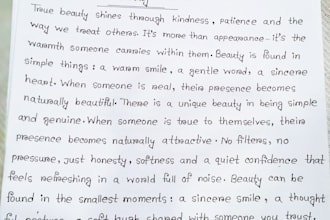 True beauty shines through kindness, patience and the
way we treat others. It's more than appearance - it's the
warmth someone carries within them. Beauty is found in
simple things : a warm smile, a gentle word, a sincere
heart. When someone is real, their presence becomes
naturally beautiful. There is a unique beauty in being simple
and genuine. When someone is true to themselves, their
presence becomes naturally attractive. No filters, no
pressure, just honesty, softness and a quiet confidence that
feels refreshing in a world full of noise. Beauty can be
found in the smallest moments : a sincere smile, a thought
with someone you trust,